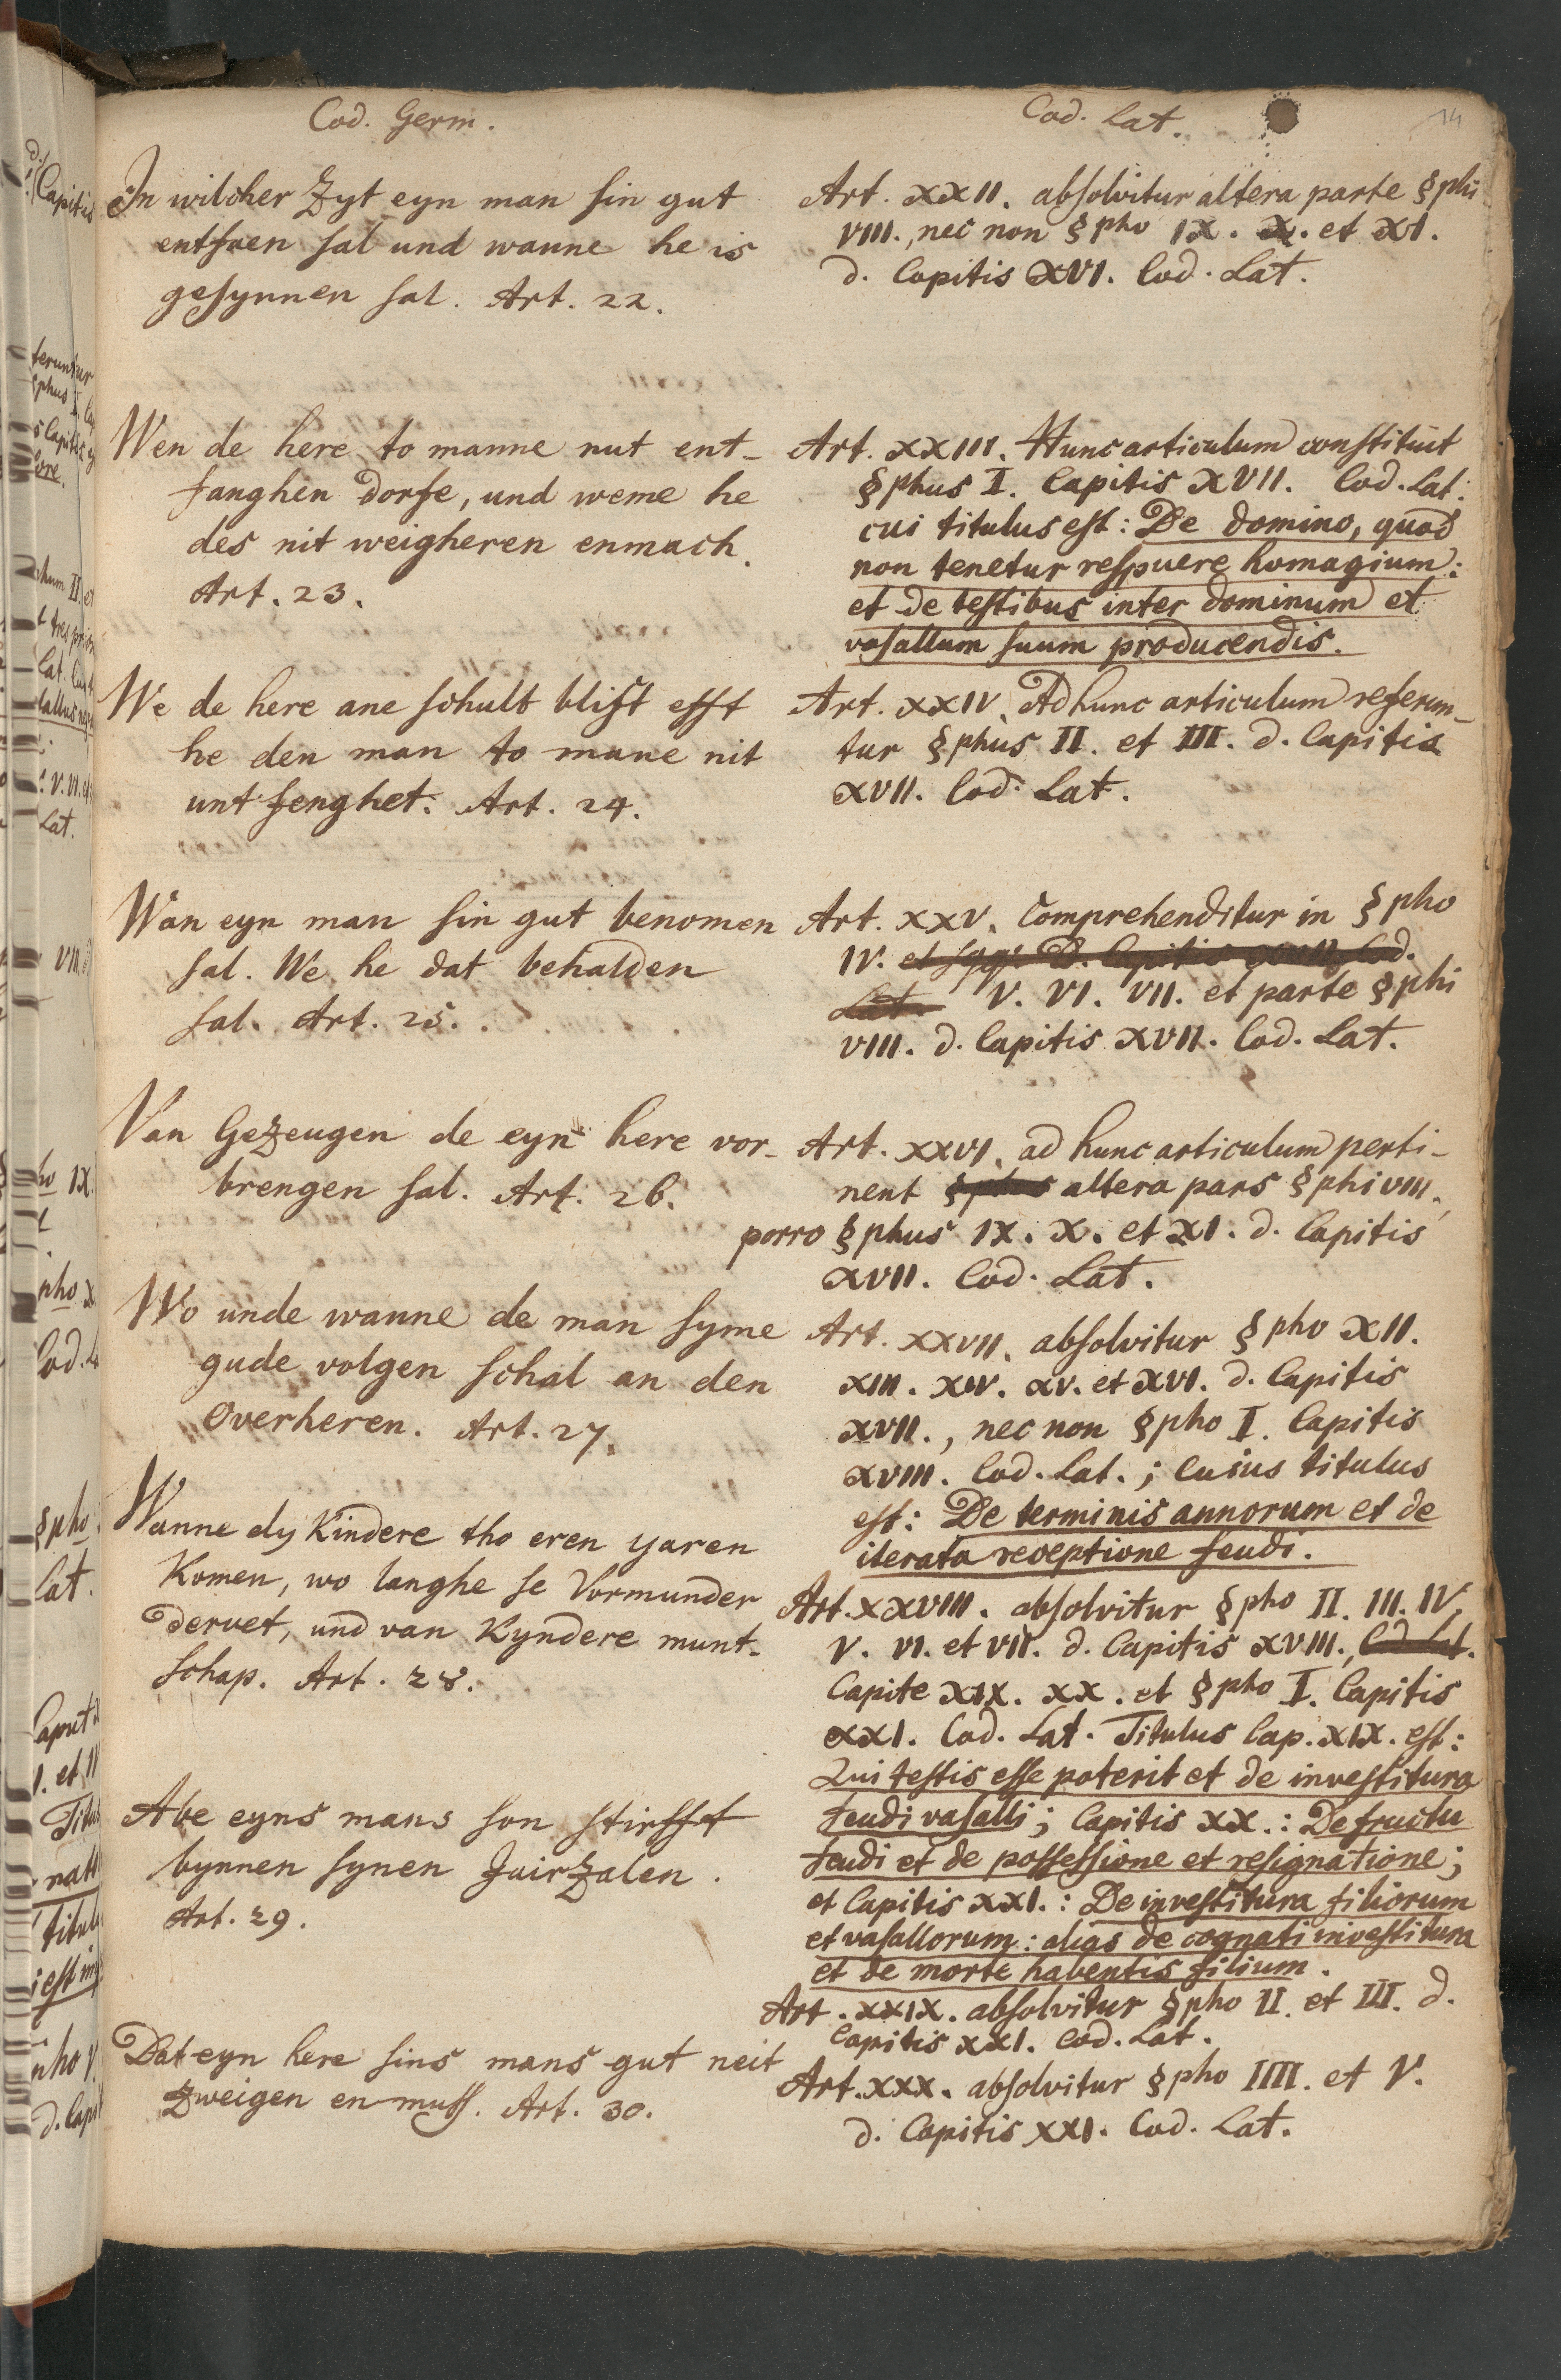 Cod. Germ.
In wilcher Zyt eyn man sin gut
entfaen sal und wanne he is
gesynnen sal. Art. 22.
Wen de here to manne nut ent-
fanghen dorfe, und weme he
des nit weigheren enmach.
Art. 23.
We de here ane schult blift efft
he den man to mane nit
untfenghet. Art. 24.
Wan eyn man sin gut benomen
sal. We he dat behalden
sal. Art. 25.
Van Gezeugen de eyn here vor-
brengen sal. Art. 26.
Wo unde wanne de man syme
gude volgen schal an den
Overheren. Art. 27.
Wanne dy Kindere tho eren yaren
Komen, wo langhe se Vormunder
dervet, und van Kyndere munt-
schap. Art. 28.
Abe eyns mans son stirfft
bynnen synen Jairzalen.
Art. 29.
Dat eyn here sins mans gut neit
Zweigen en muss. Art. 30.
Cod. Lat.
14
Art. XXII. absolvitur altera parte §phi
VIII., nec non §pho IX. X. et XI.
d. Capitis XVI. Cod. Lat.
Art. XXIII. Hunc articulum constituit
§phus I. Capitis XVII. Cod. Lat.
cui titulus est: De domino, quod
non tenetur respuere homagium:
et de testibus inter dominum et
vasallum suum producendis.
Art. XXIV. Ad hunc articulum referun-
tur §phus II. et III. d. Capitis
XVII. Cod. Lat.
Art. XXV. Comprehenditur in §pho
IV. et sqq. d. Capitis XVII. Cod.
Lat. V. VI. VII. et parte §phi
VIII. d. Capitis XVII. Cod. Lat.
Art. XXVI. ad hunc articulum perti-
nent §phus altera pars §phi VIII.,
porro §phus IX. X. et XI. d. Capitis
XVII. Cod. Lat.
Art. XXVII. absolvitur §pho XII.
XIII. XIV. XV. et XVI. d. Capitis
XVII., nec non §pho I. Capitis
XVIII. Cod. Lat.; Cuius titulus
est: De terminis annorum et de
iterata receptione feudi.
Art. XXVIII. absolvitur §pho II. III. IV.
V. VI. et VII. d. Capitis XVIII., Cod. Lat.
Capite XIX. XX. et §pho I. Capitis
XXI. Cod. Lat. Titulus Cap. XIX. est:
Qui testis esse poterit et de investitura
feudi vasalli; Capitis XX.: De fructu
feudi et de possessione et resignatione;
et Capitis XXI.: De investitura filiorum
et vasallorum: alias de cognati investitura
et de morte habentis filium.
Art. XXIX. absolvitur §pho II. et III. d.
Capitis XXI. Cod. Lat.
Art. XXX. absolvitur §pho IIII. et V.
d. Capitis XXI. Cod. Lat.